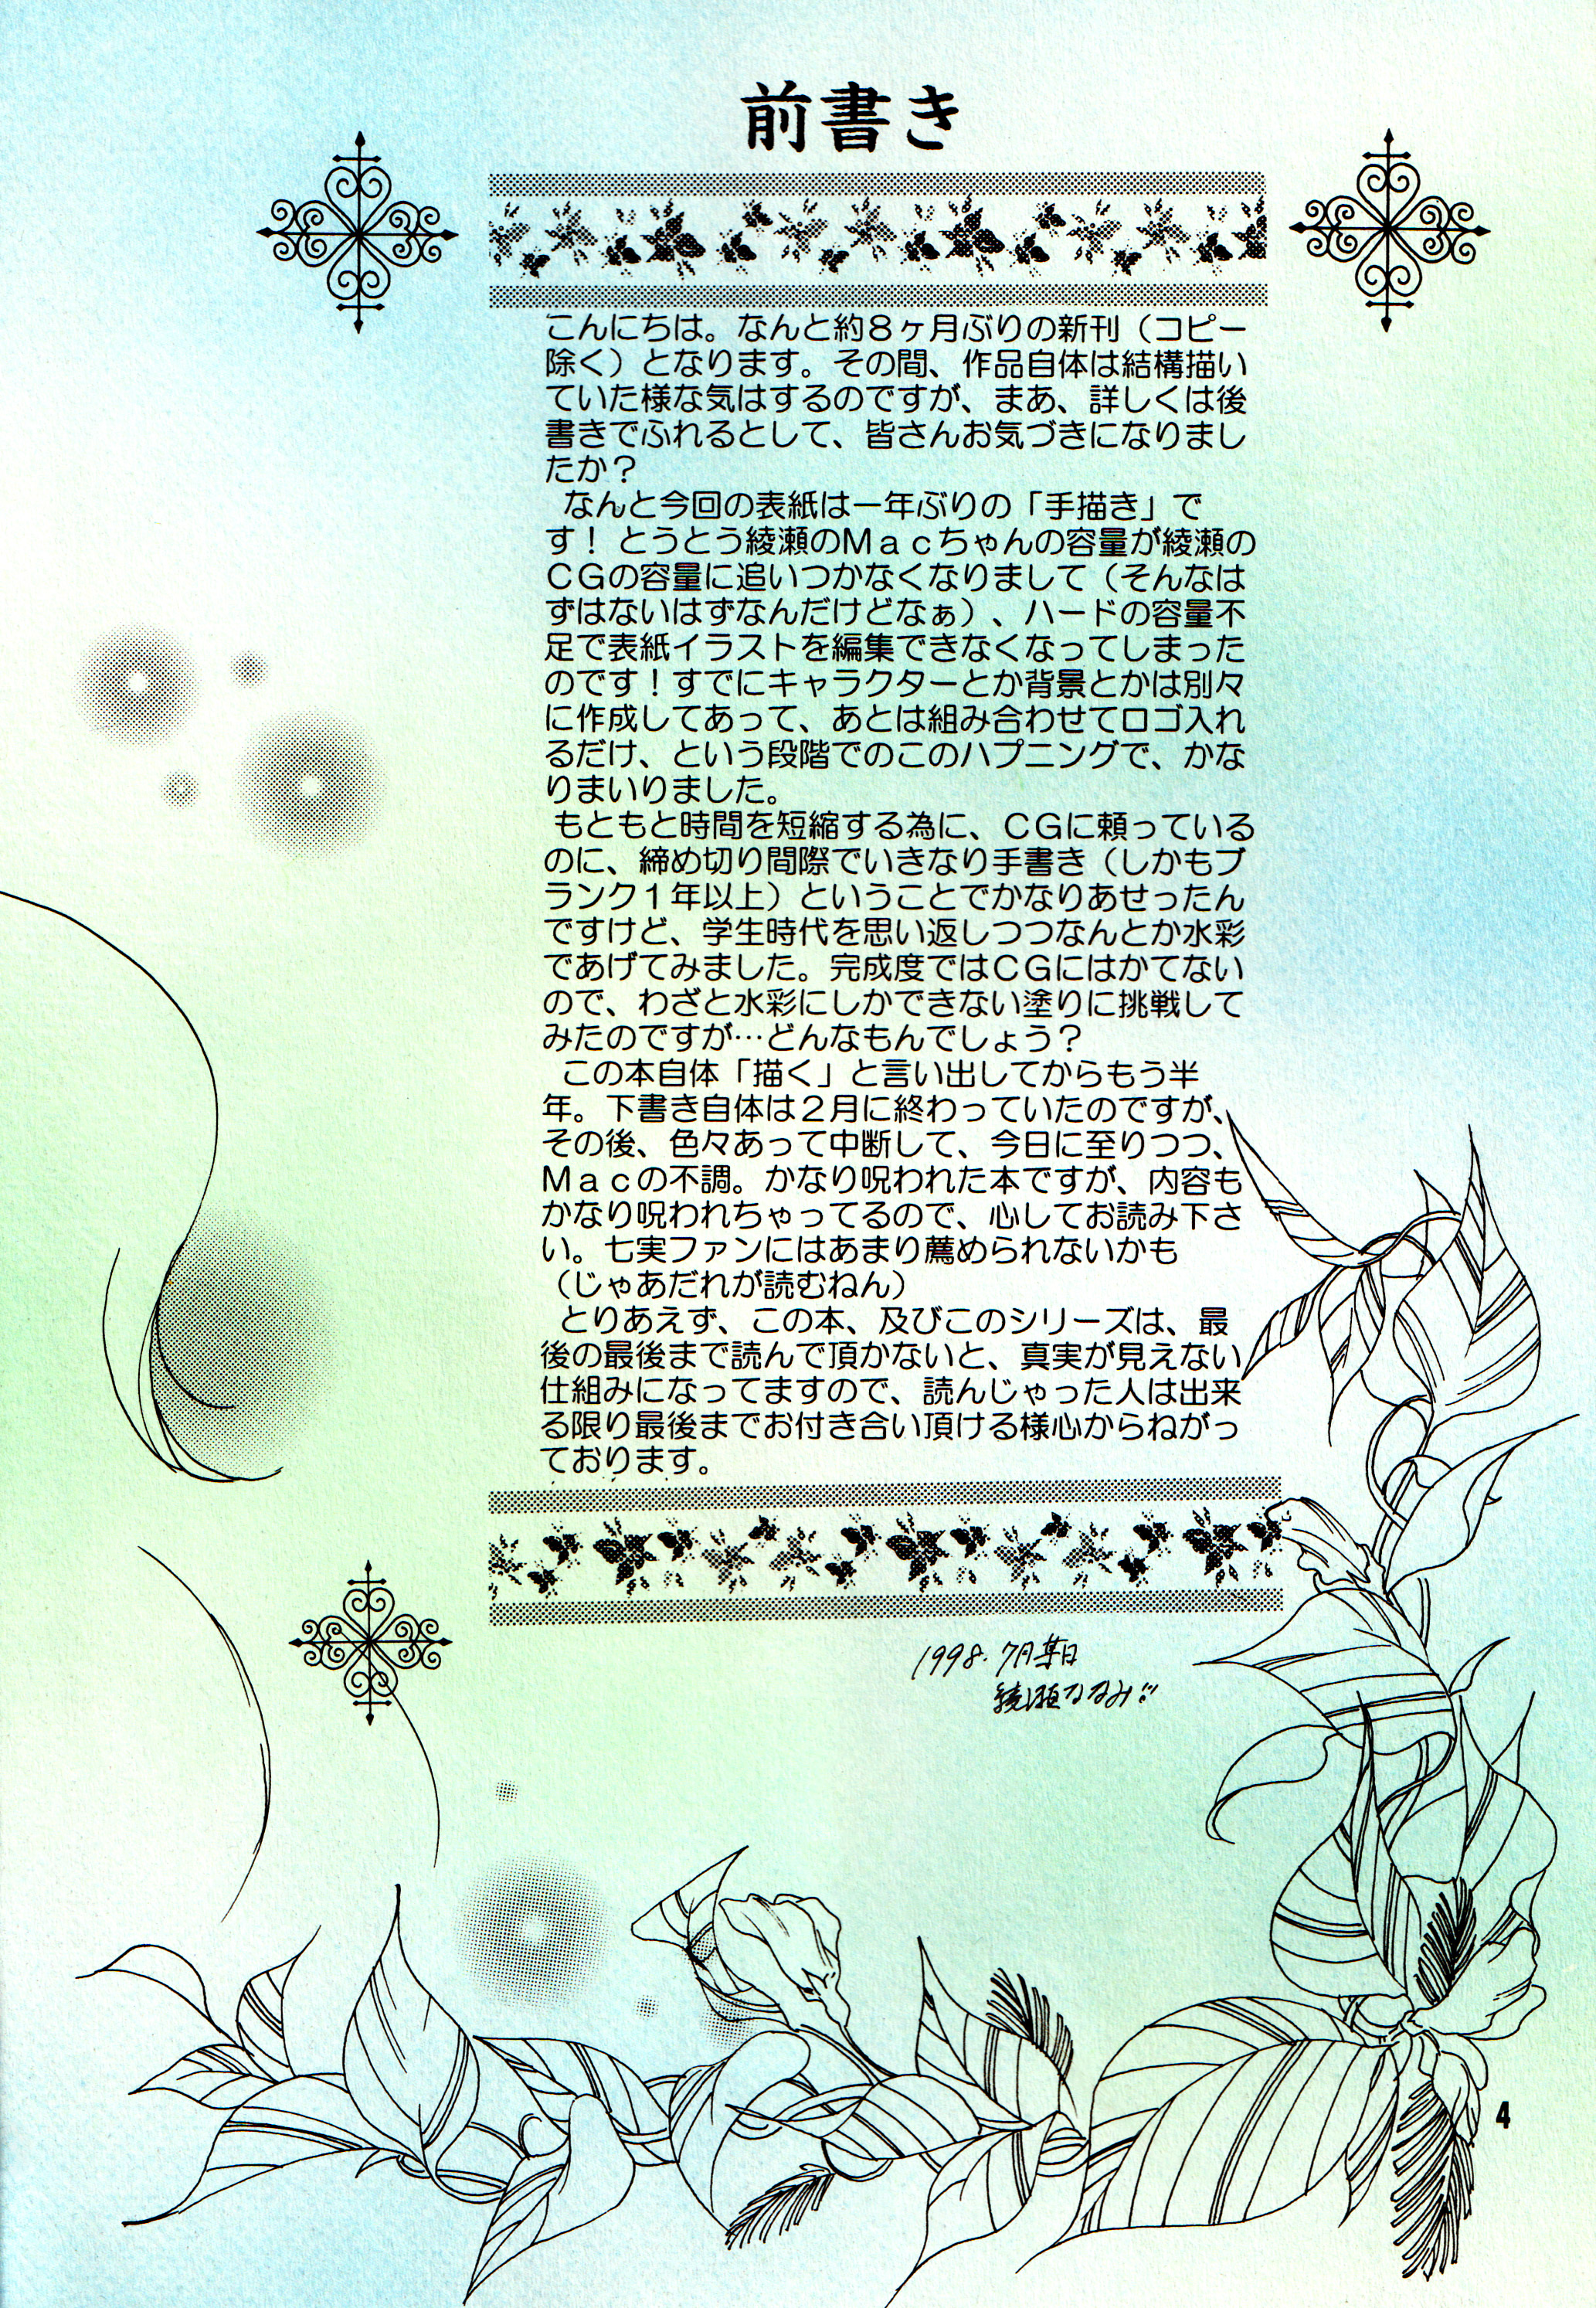 前書き
こんにちは。なんと約８ヶ月ぶりの新刊（コピー
除く）となります。その間、作品自体は結構描い
ていた様な気はするのですが、まあ、詳しくは後
書きでふれるとして、皆さんお気づきになりまし
たか？
なんと今回の表紙は一年ぶりの「手描き」で
す！とうとう綾瀬のＭａｃちゃんの容量が綾瀬の
ＣＧの容量に追いつかなくなりまして（そんなは
ずはないはずなんだけどなぁ）、ハードの容量不
足で表紙イラストを編集できなくなってしまった
のです！すでにキャラクターとか背景とかは別々
に作成してあって、あとは組み合わせてロゴ入れ
るだけ、という段階でのこのハプニングで、かな
りまいりました。
もともと時間を短縮する為に、ＣＧに頼っている
のに、締め切り間際でいきなり手書き（しかもブ
ランク１年以上）ということでかなりあせったん
ですけど、学生時代を思い返しつつなんとか水彩
であげてみました。完成度ではＣＧにはかてない
ので、わざと水彩にしかできない塗りに挑戦して
みたのですが…どんなもんでしょう？
この本自体「描く」と言い出してからもう半
年。下書き自体は２月に終わっていたのですが、
その後、色々あって中断して、今日に至りつつ、
Ｍａｃの不調。かなり呪われた本ですが、内容も
かなり呪われちゃってるので、心してお読み下さ
い。七実ファンにはあまり薦められないかも
（じゃあだれが読むねん）
とりあえず、この本、及びこのシリーズは、最
後の最後まで読んで頂かないと、真実が見えない
仕組みになってますので、読んじゃった人は出来
る限り最後までお付き合い頂ける様心からねがっ
ております。
1998.7月某日
綾瀬ななみ
4